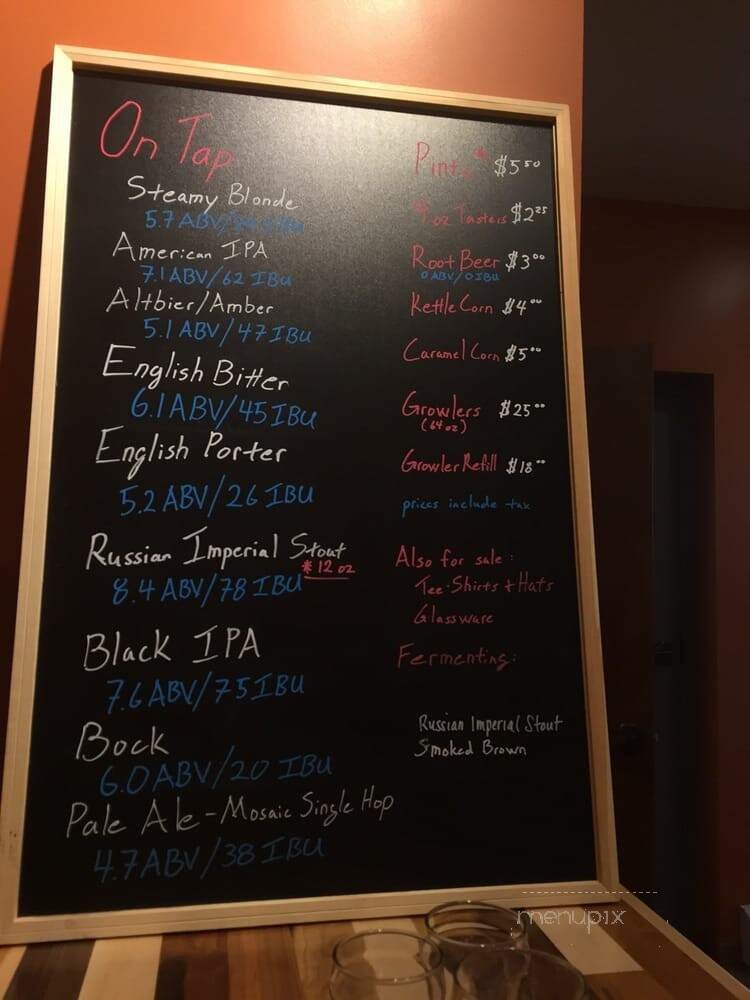 On Tap
Steamy Blonde
5.7 ABV/
American IPA
7.1 ABV/62 IBU
Altbier/Amber
5.1 ABV/47 IBU
English Bitter
6.1 ABV/45 IBU
English Porter
5.2 ABV/26 IBU
Russian Imperial Stout
* 12 oz
8.4 ABV/78 IBU
Black IPA
7.6 ABV/75 IBU
Bock
6.0 ABV/20 IBU
Pale Ale - Mosaic Single Hop
4.7 ABV/38 IBU
Pints* $5.50
oz Tasters $2.25
Root Beer $3.00
0 ABV/0 IBU
Kettle Corn $4.00
Caramel Corn $5.00
Growlers $25.00
(64 oz)
Growler Refill $18.00
prices include tax
Also for sale:
Tee-Shirts + Hats
Glassware
Fermenting:
Russian Imperial Stout
Smoked Brown
menupix